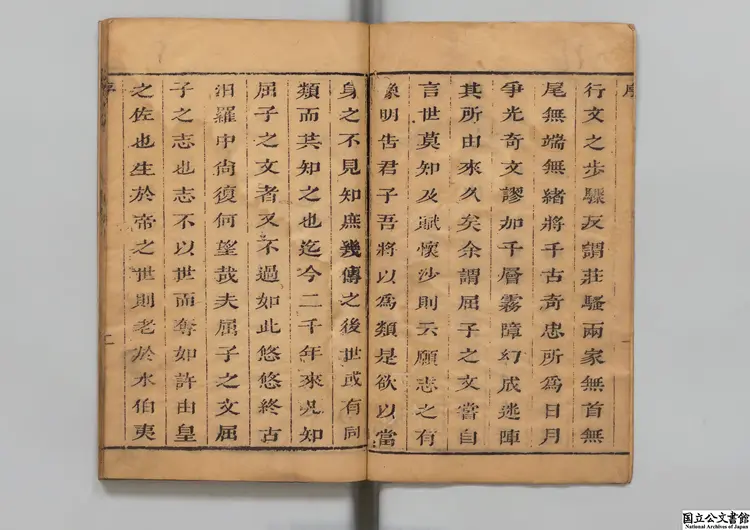 序
行文之步驟反謂莊騷兩家無首無
尾無端無緒將千古奇忠所為日月
爭光奇文謬加千層霧障幻成迷陣
其所由來久矣余謂屈子之文當自
言世莫知及賦懷沙則云願志之有
像明告君子吾將以為類是欲以當
身之不見知庶幾傳之後世或有同
類而其知之也迄今二千年來見知
屈子之文者又不過如此悠悠終古
汨羅中尚復何望哉夫屈子之文屈
子之志也志不以世而奪如許由皇
之佐也生於帝之世則老於水伯夷
序
二
国立公文書館
National Archives of Japan